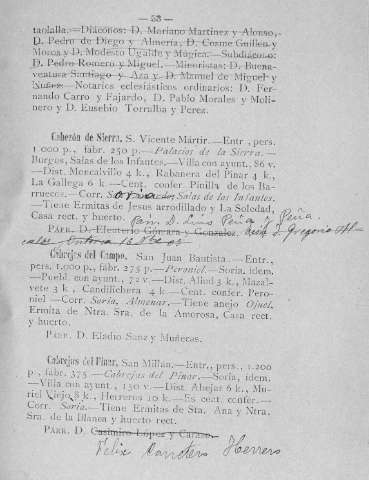 — 53 —
taolalla.—Diáconos: D. Mariano Martínez y Alonso,
D. Pedro de Diego y Almería, D. Cosme Guillen y
Mosca y D. Modesto Ugalde y Mágica.—Subdiácono:
D. Pedro Romero y Miguel.—Minoristas: D. Buena-
ventura Santiago y Aza y D. Manuel de Miguel y
Nuñez—Notarios eclesiásticos ordinarios: D. Fer-
nando Carro y Fajardo, D. Pablo Morales y Moli-
nero y D. Eusebio Torralba y Perez.
Cabezón de Sierra, S. Vicente Mártir.—Entr, pers.
1.000 p., fabr. 250 p.—Palacios de la Sierra.—
Burgos, Salas de los Infantes.—Villa con ayunt., 86 v.
—Dist. Moncalvillo 4 k., Rabanera del Pinar 4 k.,
La Gallega 6 k—Cent. confer. Pinilla de los Ba-
rruecos.—Corr. Salas de los Infantes.
—Tiene Ermitas de Jesus arrodillado y La Soledad,
Casa rect. y huerto. Párr. D. Lino Peña y Peña.
PÁRR. D. Eleuterio Gómara y Gonzalez. D. Gregorio
Cabrejas del Campo. San Juan Bautista.—Entr.,
pers. 1.000 p., fabr. 275 p.—Peroniel.—Soria, idem.
—Puebl. con ayunt., 72 v—Dist. Aliud 3 k., Mazal-
vete 3 k., Candilichera 4 k.—Cent. confer. Pero-
niel—Corr. Soria, Almenar.—Tiene anejo Ojuel.
Ermita de Ntra. Sra. de la Amorosa, Casa rect.
y huerto.
PÁRR. D. Eladio Sanz y Muñecas.
Cabrejas del Pinar, San Millán.—Entr., pers., 1.200
p., fabr. 375—Cabrejas del Pinar.—Soria, idem.
—Villa con ayunt., 150 v.—Dist. Abejar 6 k., Mu-
riel Viejo 8 k., Herreros 10 k.—Es cent. confer.—
Corr. Soria.—Tiene Ermitas de Sta. Ana y Ntra.
Sra. de la Blanca y huerto rect.
PÁRR. D. Casimiro López y Caraso.
Felix Carretero Herrero